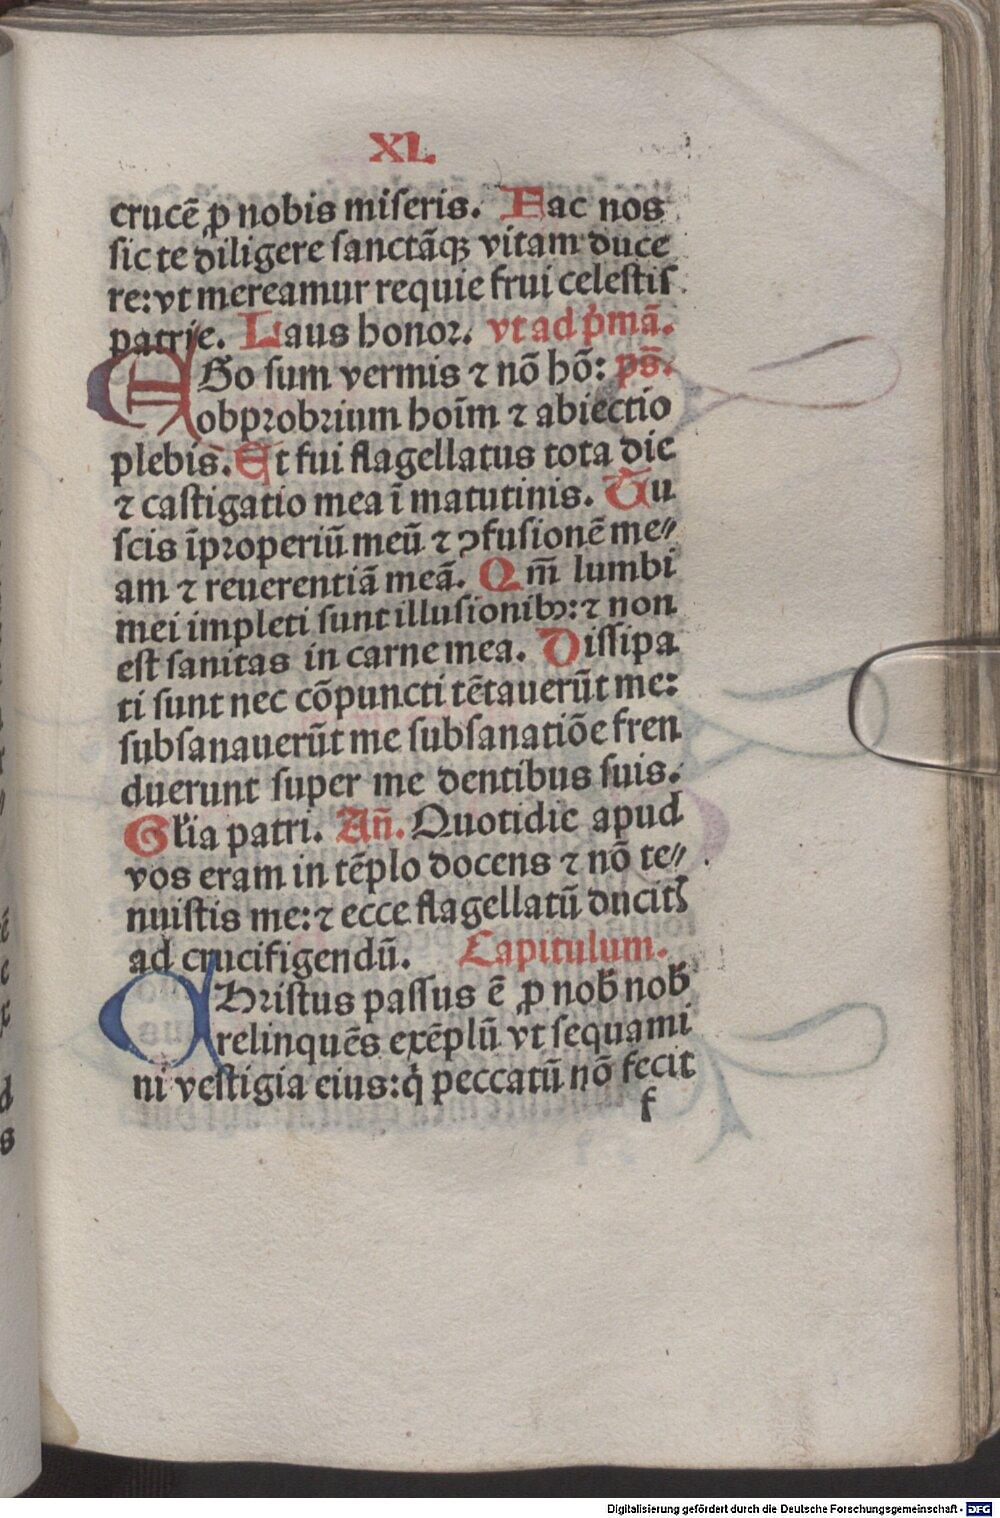 XL.
crucē ꝓ nobis miſeris. Fac nos
ſic te diligere ſanctāqꝫ vitam duce
re: vt mereamur requie frui celeſtiſ
patrie. Laus honor. vt ad p̄mā.
EGo ſum vermis ⁊ nō hō: pṡ.
obprobrium hoīm ⁊ abiectio
plebis. Et fui flagellatus tota die
⁊ caſtigatio mea ī matutinis. Tu
ſcis īproperiū meū ⁊ ꝯfuſionē me⸗
am ⁊ reuerentiā meā. Qm̄ lumbi
mei impleti ſunt illuſionibꝰ: ⁊ non
eſt ſanitas in carne mea. Diſſipa
ti ſunt nec cōpuncti tētauerūt me:
ſubſanauerūt me ſubſanatiōe fren
duerunt ſuper me dentibus ſuis.
Gl̓ia patri. Añ. Quotidie apud
vos eram in tēplo docens ⁊ nō te⸗
nuiſtis me: ⁊ ecce flagellatū ducitꝭ
ad crucifigendū. Capitulum.
CHriſtus paſſus ē ꝓ nob̄ nob̄
relinquēs exēplū vt ſequami
ni veſtigia eius: q̇ peccatū nō fecit
f
Digitalisierung gefördert durch die Deutsche Forschungsgemeinschaft - DFG